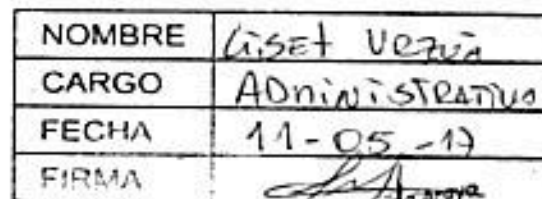 NOMBRE Liset
CARGO ADMINISTRATIVO
FECHA 11-05-17
FIRMA